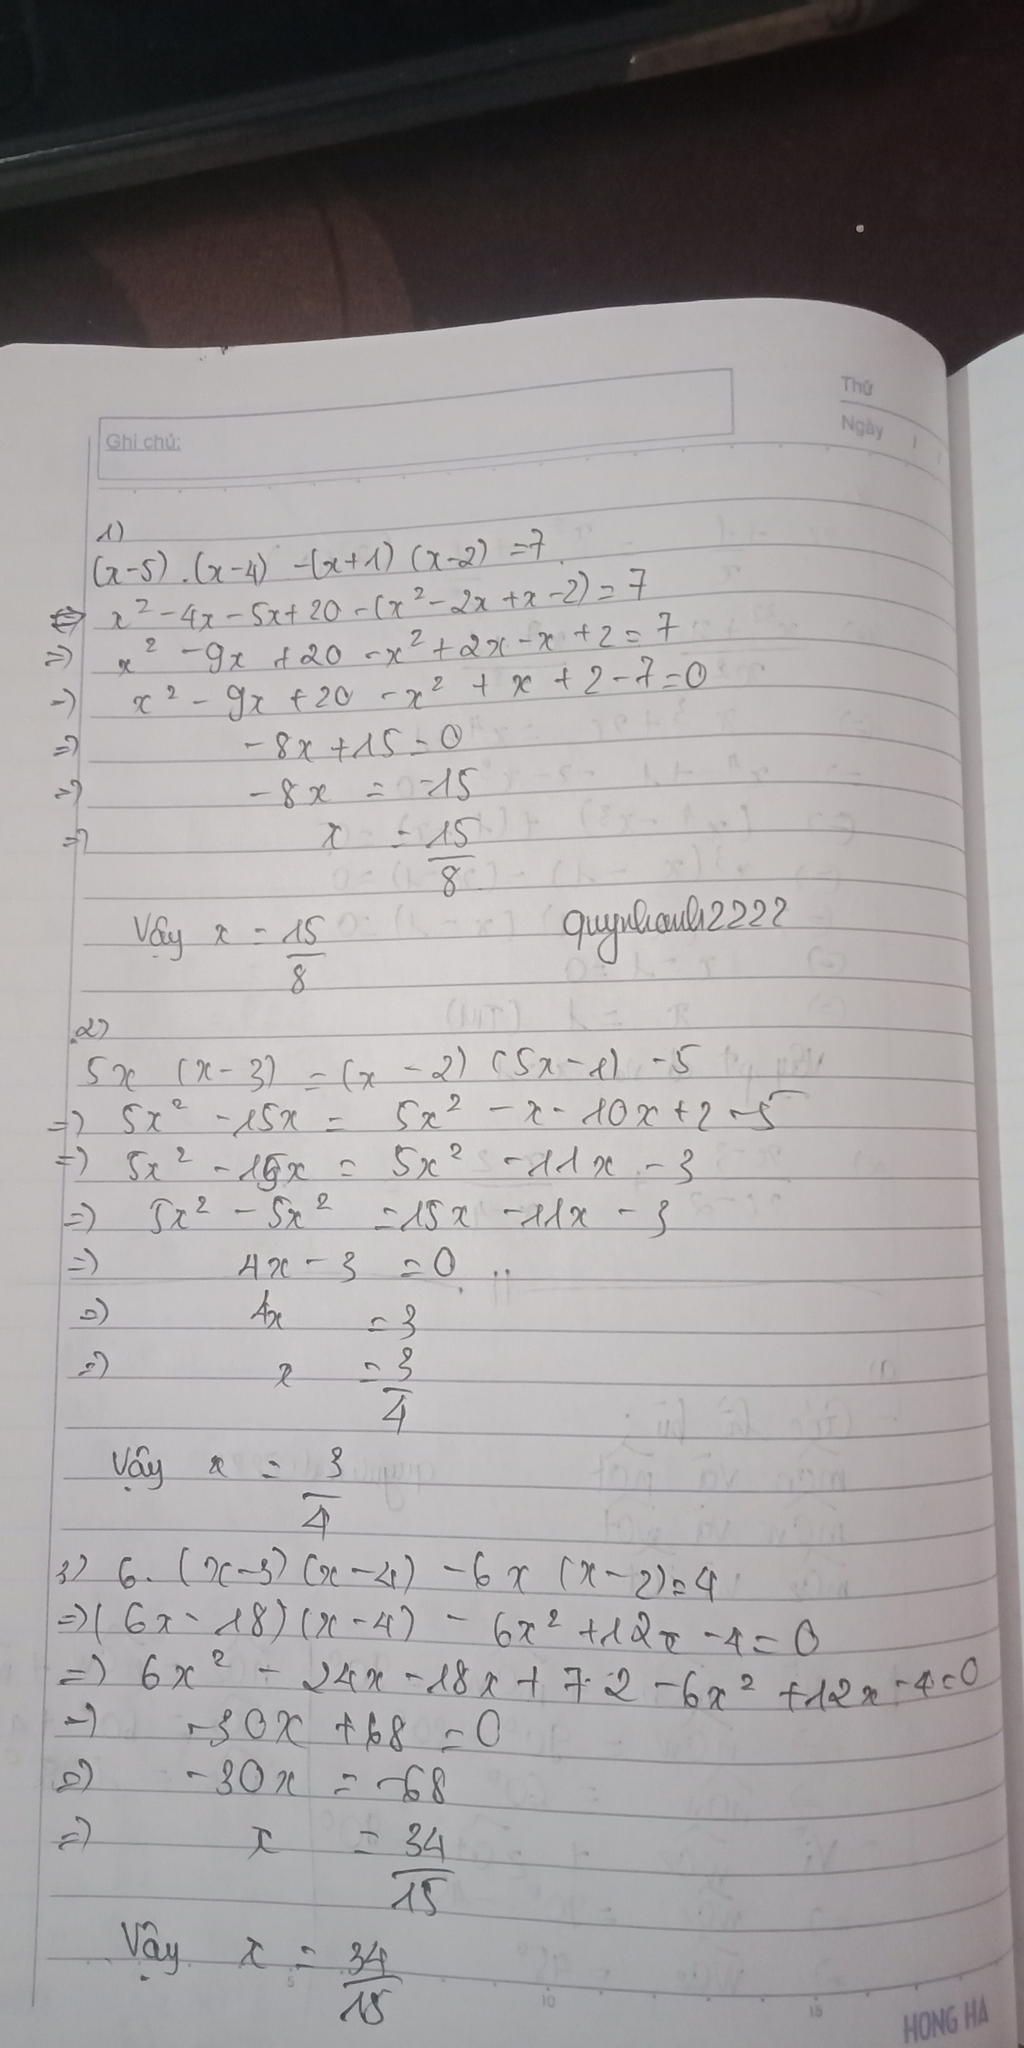 Thứ
Ngày / /
Ghi chú:
1)
(x-5).(x-4) -(x+1) (x-2) =7
<=> x² -4x -5x+20 -(x²-2x+x-2)=7
=> x² -9x +20 -x²+2x-x+2=7
=> x² -9x +20 -x² + x +2-7=0
=> -8x+15=0
=> -8x = -15
=> x = 15/8
Vậy x = 15/8 quynhanh2222
2)
5x (x-3) = (x -2) (5x-1) -5
=> 5x² -15x = 5x² -x-10x+2-5
=> 5x² -15x = 5x² -11x -3
=> 5x² -5x² =15x -11x -3
=> 4x-3 =0
=> 4x =3
=> x = 3/4
Vậy x = 3/4
3) 6.(x-3)(x-4) -6x (x-2)=4
=> (6x-18)(x-4) - 6x²+12x-4=0
=> 6x² - 24x -18x + 72 -6x² +12x-4=0
=> -30x +68 =0
=> -30x = -68
=> x = 34/15
Vậy x = 34/15
5 10 15
HONG HA